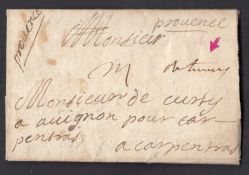 provence
provence
Monsieur
Monsieur de
a avignon pour car
pentras
a carpentras